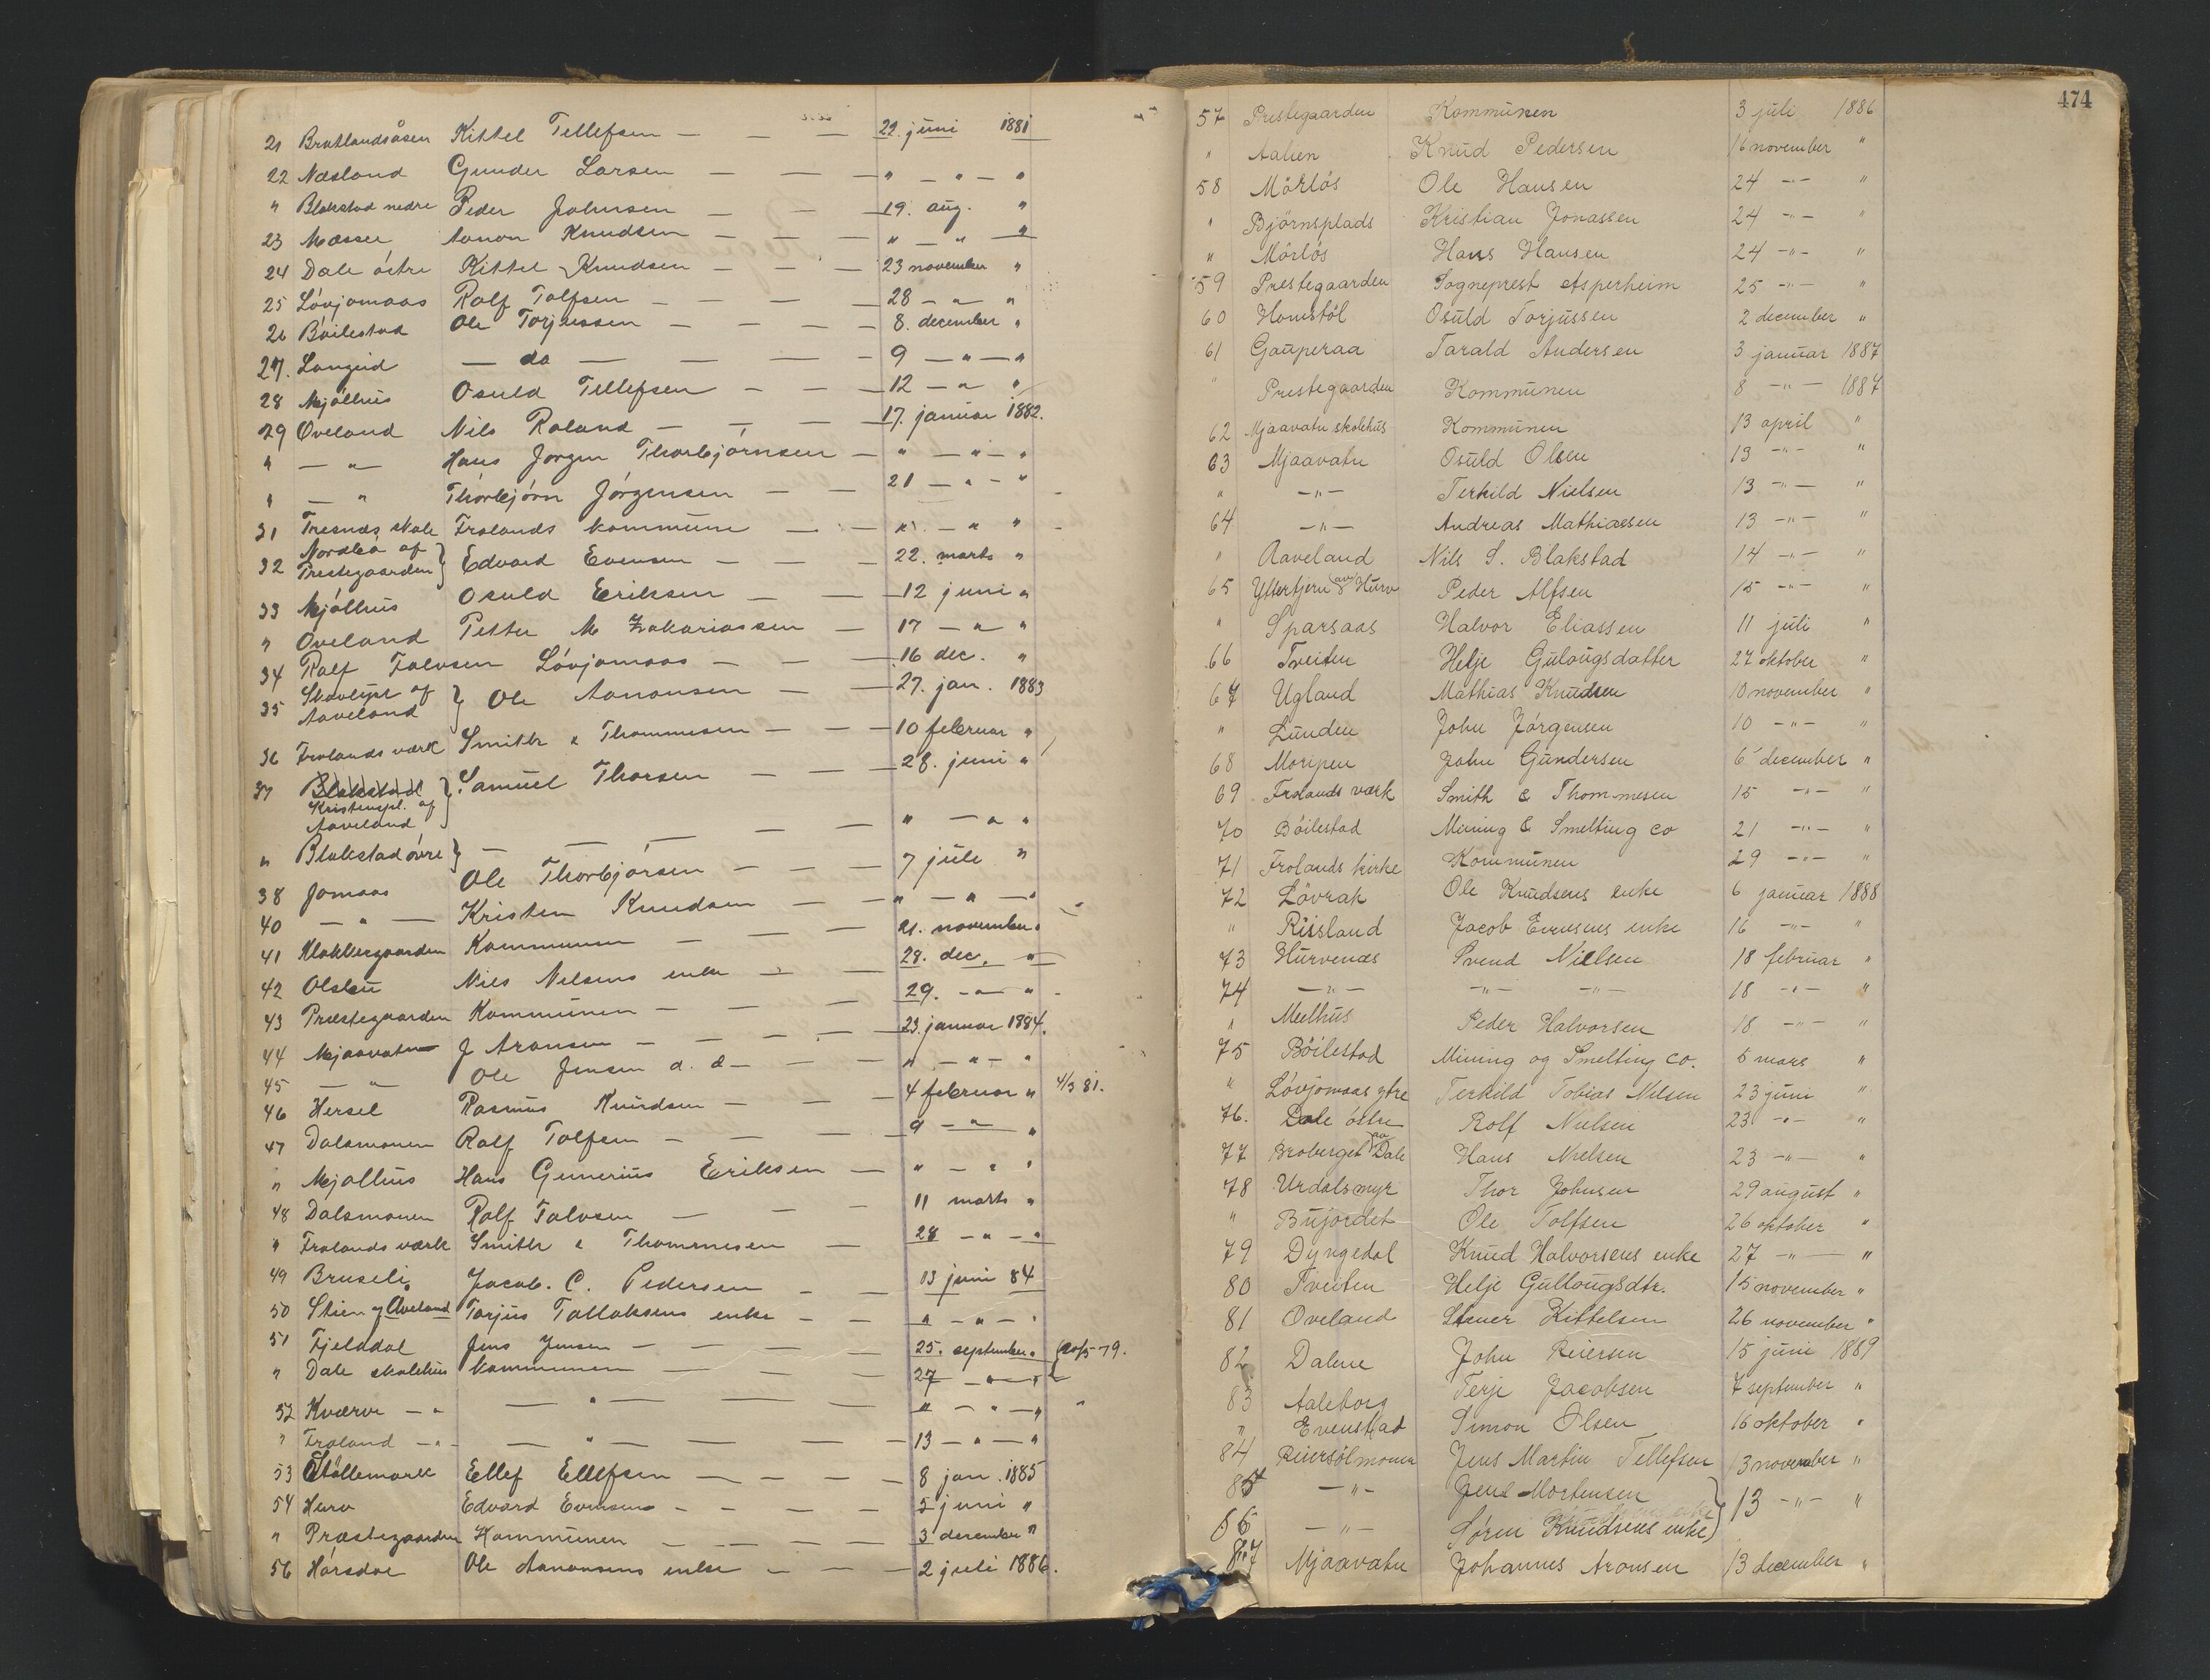 21 Bratlandsåsen Kittel Tellefsen — — — 22. juni 1881
22 Næsland Gunder Larsen — — — " — " — "
" Blakstad nedre Peder Johnsen — — — 19. aug. "
23 Messer Aanon Knudsen — — — " — " — "
24 Dale östre Kittel Knudsen — — — 23 november "
25 Lövjomaas Rolf Tolfsen — — — 28 — " — "
26 Böilestad Ole Torjussen — — — — 8. december "
27. Langeid — do — — — — 9 — " — "
28 Mjölhus Osuld Tellefsen — — — 12 — " "
29 Øveland Nils Roland — — — — 17. januar 1882.
" — " — Hans Jørgen Thorbjörnsen — " — " — "
" — " Thorbjörn Jörgensen — — 21 — " — "
31 Tresnæs skole Frolands kommune — — " — " "
32 Nordbø af Prestegaarden } Edvard Evensen — — — 22. marts "
33 Mjölhus Osuld Eriksen — — 12 juni "
" Oveland Petter M Zakariassen — 17 — " — "
34 Rolf Talvsen Lövjomaas — — — 16 dec. "
35 Skovlyst af Aaveland } Ole Aanonsen — — 27. jan. 1883
36 Frolands værk Smith & Thommesen — — — 10 februar "
37 Blakstad Kristenspl. af Aaveland } Samuel Thorsen — — — 28. juni "
" Blakstad övre } — — — — — " — " "
38 Jomaas Ole Thorbjörsen — — — 7 juli "
40 — " — Kristen Knudsen — — " — " — "
41 Klokkergaarden Kommunen — — — 21. november "
42 Olsbu Nils Nilsens enke — — 28. dec. "
43 Præstegaarden Kommunen — — — 29. — " — "
44 Mjaavatn J Aronsen — — — — 23. januar 1884.
45 — " Ole Jensen a. d — — — " — " — "
46 Hersel Rasmus Knudsen — — — 4 februar " 4/3 81.
47 Dalsmonen Rolf Tolfsen — — — 9 — " — "
" Mjølhus Hans Gunerius Eriksen — " — " "
48 Dalsmonen Rolf Talvsen — — — 11 marts "
" Frolands værk Smith & Thommesen — 28 — " — "
49 Bruseli Jacob. C. Pedersen — — 13 juni 84
50 Stien og Øveland Torjus Tallaksens enke — — " — " — "
51 Fjelddal Jens Jensen — — — — 25. september " (20/5 79.
" Dale skolehus kommunen — — — 27 — " — "
52 Kværve — " — " — — — " — " — "
" Froland — " — — " — — — — 13 — " — "
53 Støllemark Ellef Ellefsen — — — — 8 jan. 1885
54 Hurv Edvard Evensens — — — — 5 juni "
" Præstegaarden Kommunen — — — — 3 december "
56 Hörsdal Ole Aanonsens enke — — — 2 juli 1886.
474
57 Prestegaarden Kommunen 3 juli 1886
" Aalien Knud Pedersen 16 november "
58 Mörlös Ole Hansen 24 — " — "
" Björnsplads Kristian Jonassen 24 — " — "
" Mörlös Hans Hansen 24 — " — "
59 Prestegaarden Sogneprest Asperheim 25 — " — "
60 Homstöl Osuld Torjussen 2 december "
61 Gauperaa Tarald Andersen 3 januar 1887
" Prestegaarden Kommunen 8 — " — 1887
62 Mjaavatn skolehus Kommunen 13 april "
63 Mjaavatn Osuld Olsen 13 — " — "
" — " — Terkild Nielsen 13 — " — "
64 — " — Andreas Mathiasen 13 — " — "
" Aaveland Nils S. Blakstad 14 — " — "
65 Yttertjern av Hurv Peder Alfsen 15 — " — "
" Sparsaas Halvor Eliassen 11 juli "
66 Tveiten Helje Gulougsdatter 27 oktober "
67 Ugland Mathias Knudsen 10 november "
" Lunden John Jörgensen 10 — " — "
68 Moripen John Gundersen 6 december "
69 Frolands værk Smith & Thommesen 15 — " — "
70 Böilestad Mining & Smelting co 21 — " — "
71 Frolands kirke Kommunen 29 — " — "
72 Lövrak Ole Knudsens enke 6 januar 1888
" Risland Jacob Evensens enke 16 — " — "
73 Hurvenæs Svend Nielsen 18 februar "
74 — " — — " — — " — 18 — " — "
" Melhus Peder Halvorsen 18 — " — "
75 Böilestad Mining og Smelting co. 5 mars "
" Lövjomaas ytre Terkild Tobias Nilsen 23 juni "
76. Dale östre Rolf Nielsen 23 — " — "
77 Broberget av Dale Hans Nielsen 23 — " — "
78 Urdalsmyr Thor Johnsen 29 august "
" Bujordet Ole Tolfsen 26 oktober "
79 Dyngedal Knud Halvorsens enke 27 — " — "
80 Tveiten Helje Gullougsdtr. 15 november "
81 Oveland Stener Kittelsen 26 november "
82 Dalene John Reiersen 15 juni 1889
83 Aaleborg Terje Jacobsen 7 september "
" Evenstad Simon Olsen 16 oktober "
84 Reiersölmonen Jens Martin Tellefsen 13 november "
85 — " — Jens Mortensen } 13 — " — "
86 — " — Søren Knudsens enke
87 Mjaavatn Johannes Aronsen 13 december "